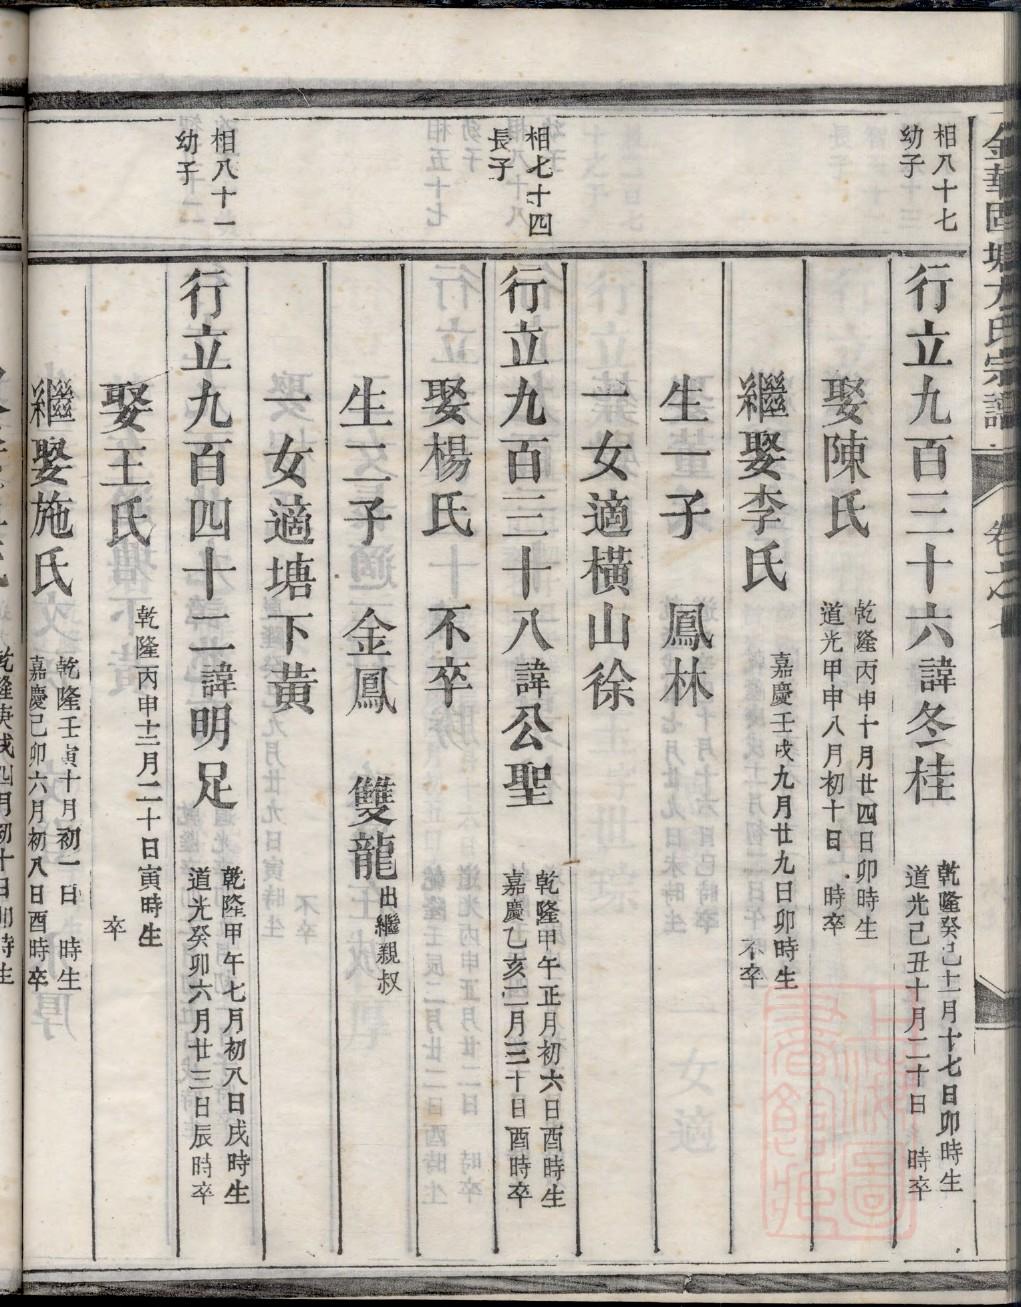 金華回塘方氏宗譜
卷之
相八十七
幼子
行立九百三十六諱冬桂
乾隆癸巳十一月十七日卯時生
道光己丑十月二十日 時卒
娶陳氏
乾隆丙申十月廿四日卯時生
道光甲申八月初十日 時卒
繼娶李氏
嘉慶壬戌九月廿九日卯時生
不卒
生一子 鳳林
一女適橫山徐
相七十四
長子
行立九百三十八諱公聖
乾隆甲午正月初六日酉時生
嘉慶乙亥二月三十日酉時卒
娶楊氏 不卒
生二子 金鳳 雙龍出繼親叔
一女適塘下黃
相八十一
幼子
行立九百四十二諱明足
乾隆甲午七月初八日戌時生
道光癸卯六月廿三日辰時卒
娶王氏
乾隆丙申十二月二十日寅時生
卒
繼娶施氏
乾隆壬寅十月初一日 時生
嘉慶己卯六月初八日酉時卒
乾隆庚戌四月初十日卯時生